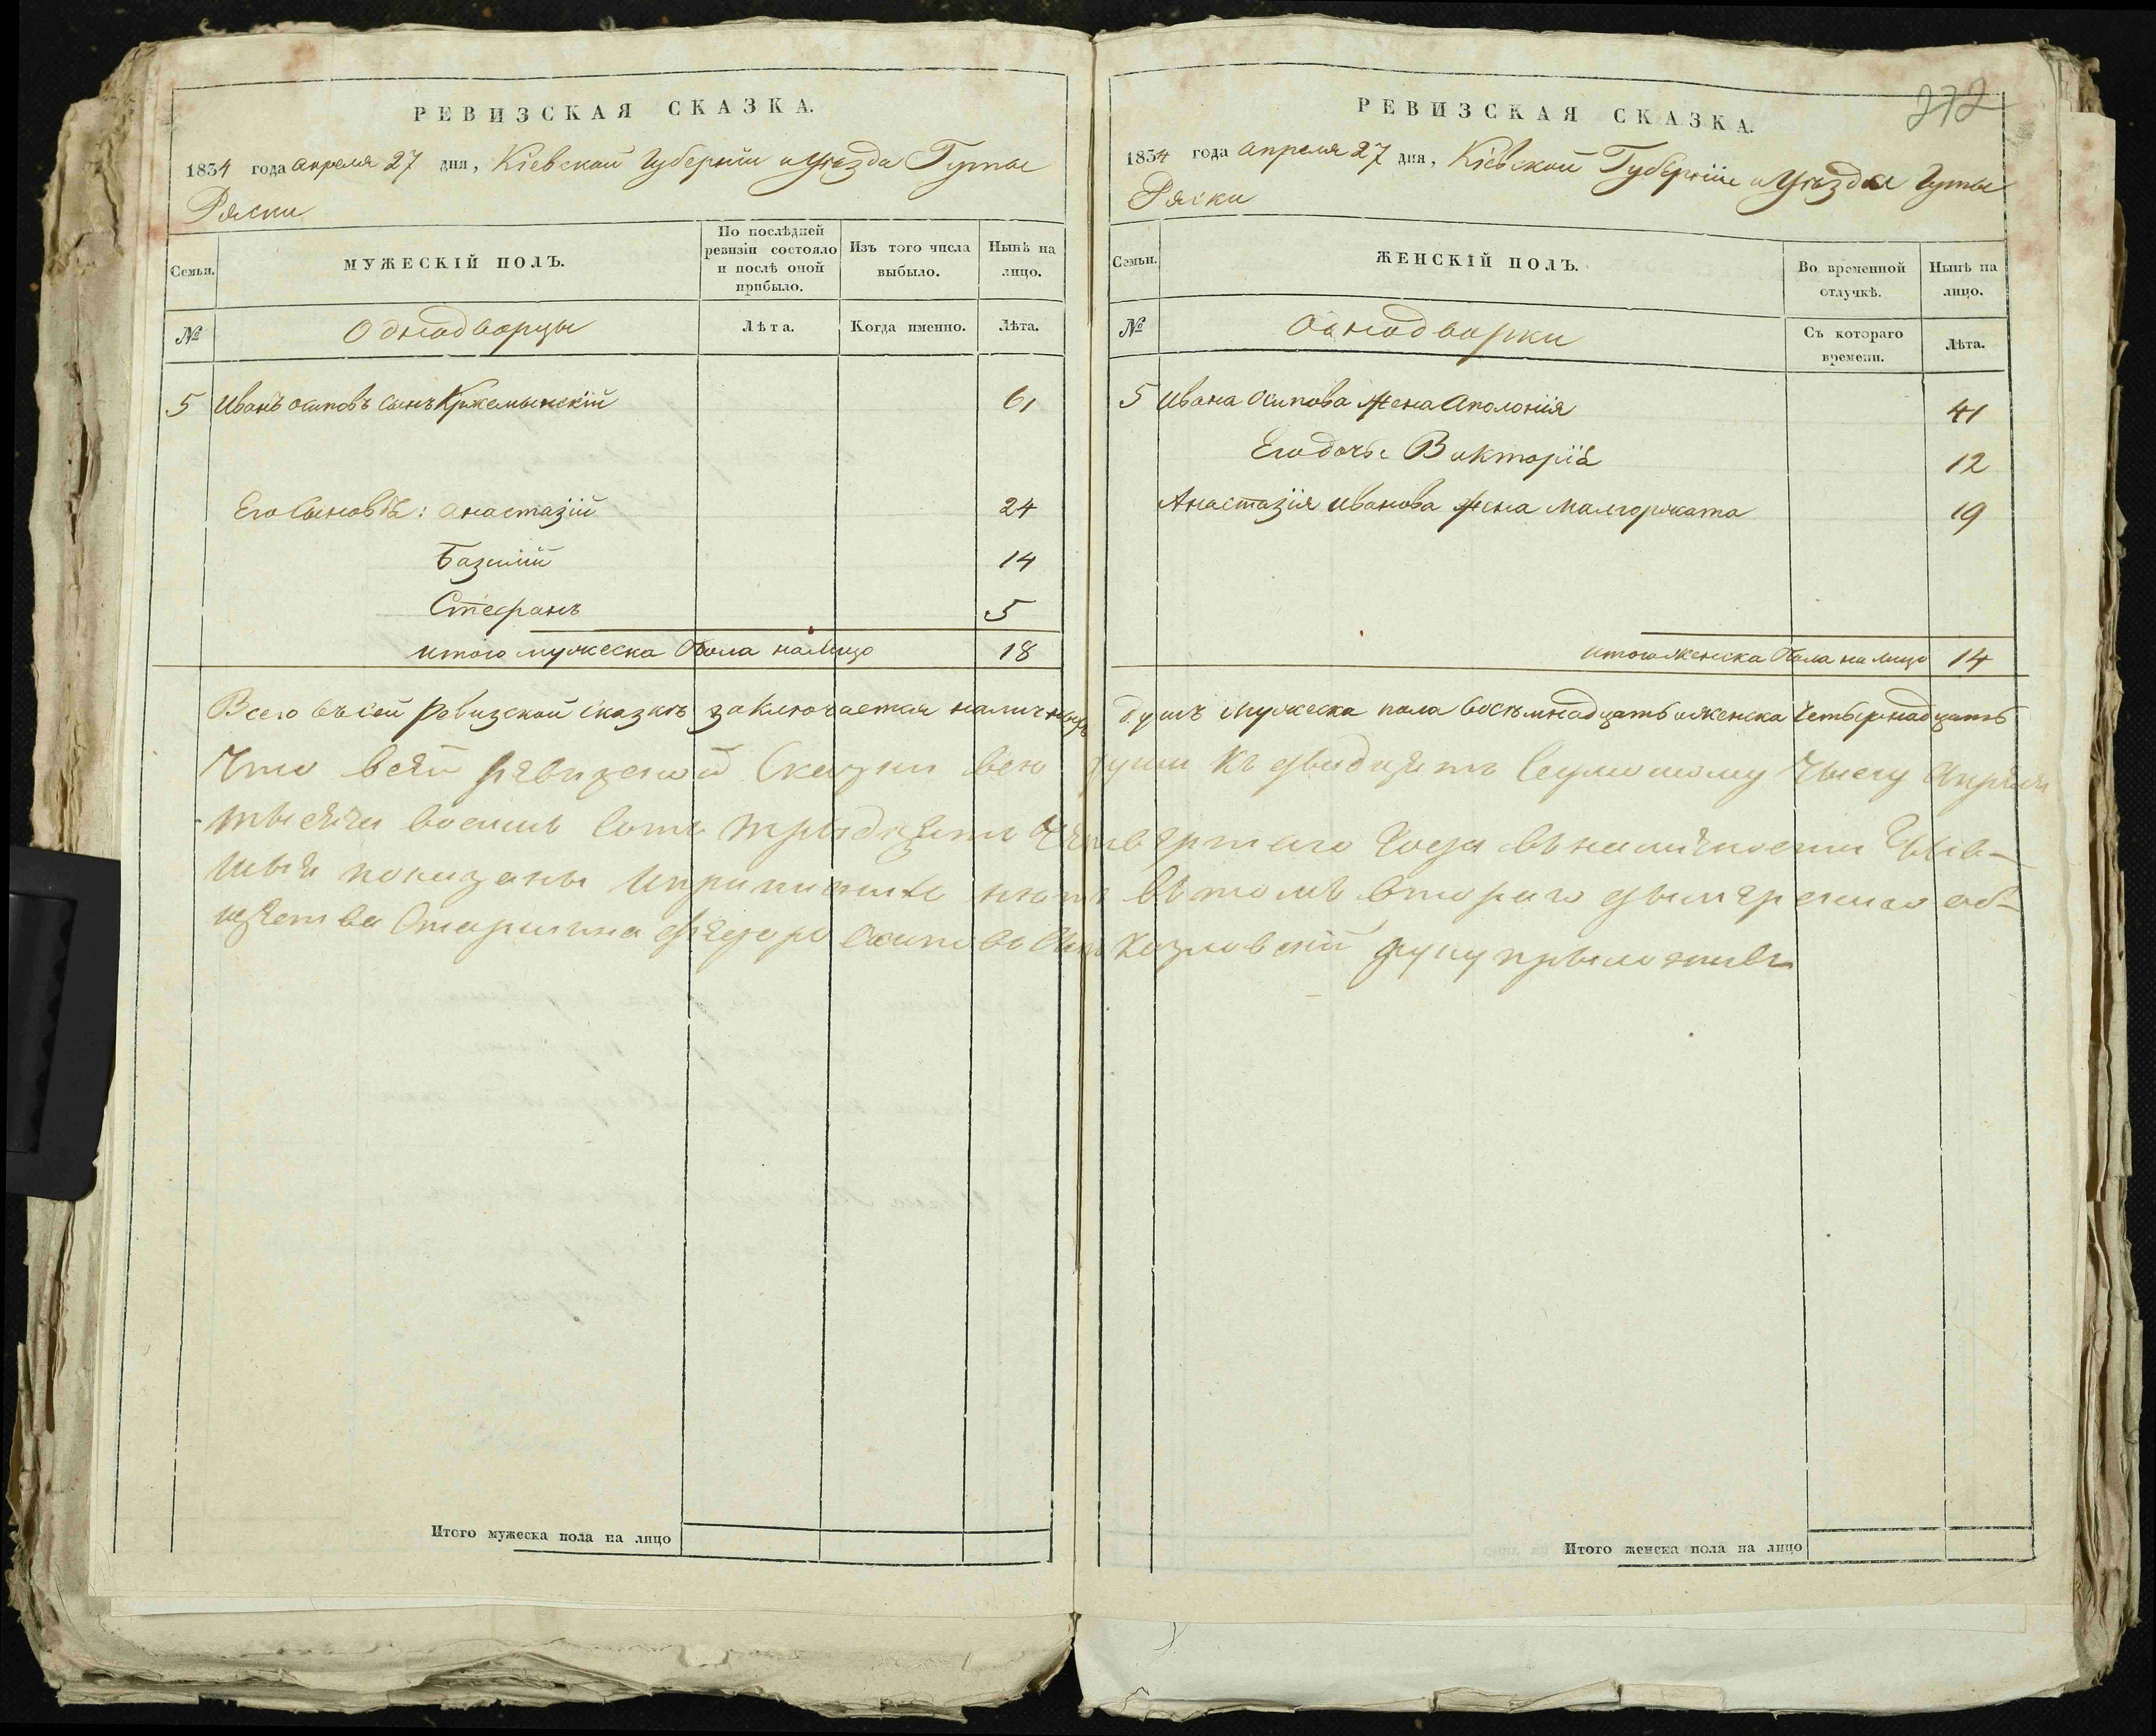 РЕВИЗСКАЯ СКАЗКА.
1834 года апреля 27 дня, Кіевской Губерніи и Уѣзда Гуты
Ряски
Семьи.
МУЖЕСКІЙ ПОЛЪ.
По послѣдней ревизіи состояло и послѣ оной прибыло.
Изъ того числа выбыло.
Нынѣ на лицо.
№
Однодворцы
Лѣта.
Когда именно.
Лѣта.
5 Иванъ осиповъ сынъ 61
Его сыновья: анастазій 24
Базилій 14
Стефанъ 5
итого мужеска пола налицо 18
Итого мужеска пола на лицо
272
РЕВИЗСКАЯ СКАЗКА.
1834 года апреля 27 дня, Кіевской Губерніи и Уѣзда Гуты
Ряски
Семьи.
ЖЕНСКІЙ ПОЛЪ.
Во временной отлучкѣ.
Нынѣ на лицо.
№
Однодворки
Съ котораго времени.
Лѣта.
5 Ивана осипова жена Аполонія 41
Его дочь Викторія 12
Анастазія иванова жена Малгоржата 19
итого женска пола на лицо 14
Всего въ сей ревизской сказкѣ заключается наличныхъ душъ мужеска пола восемнадцать и женска четырнадцать
Что всей ревизской Сказки всю души къ двадцять семомому Числу Апреля
тысяча восемь сотъ тридцять четвертаго Года въ наличности
показаны вътомъ второго
Козловскій руку
Итого женска пола на лицо